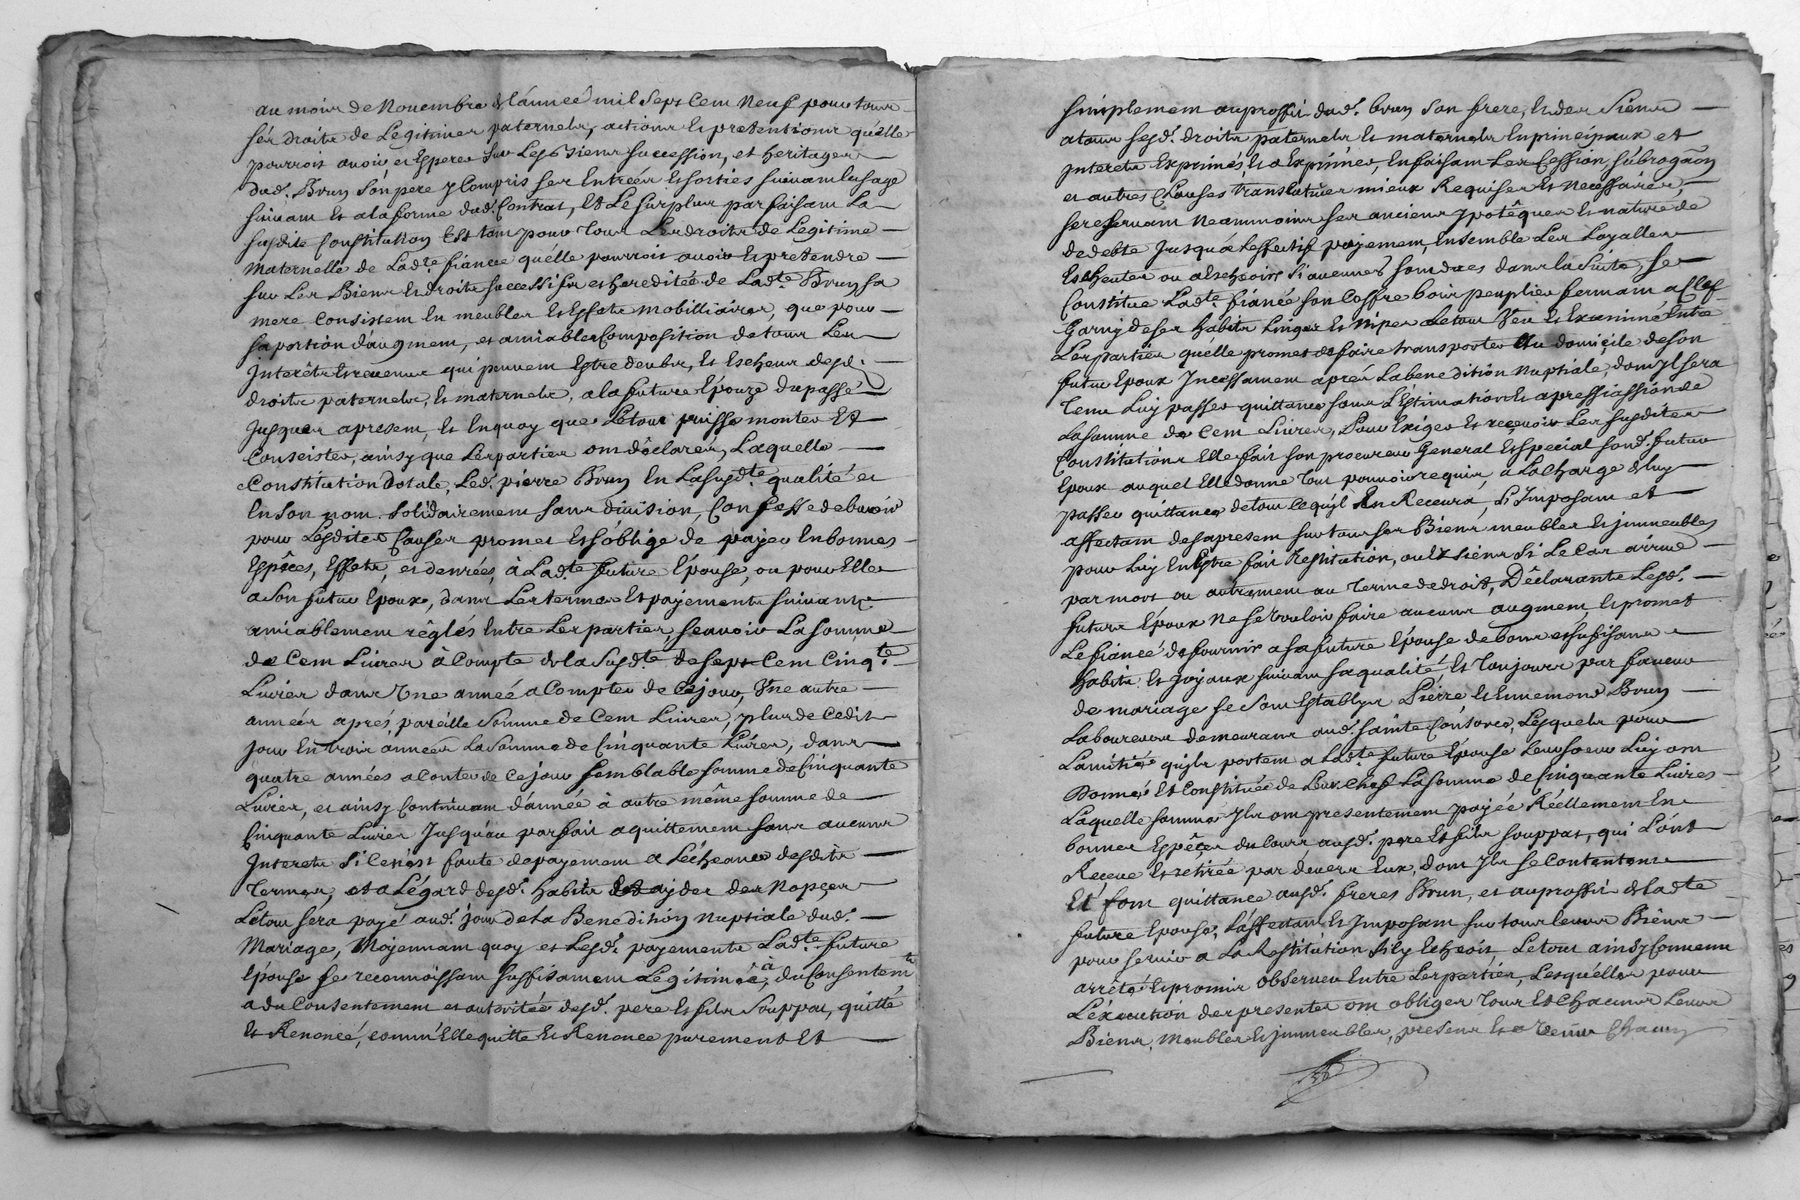 au mois de Novembre de lannee mil sept cent neuf pour tous
sés droits de Legitimes paternels, actions et pretentions quélle
pourroit avoir et Esperer sur Les biens succession, et heritages
dud. Brun son pere y Compris ses Entrées et sorties suivant lusage
suivant et a la forme dud. Contrat, Et Le surplus parfaisant La
susdite Constitution Est tant pour tous Les droits de Légitime
maternelle de Ladte fiancée quélle pourroit avoir et pretendre
sur Les Biens et droits successifs et heredité de Ladte Brun sa
mere consistent En meubles et Effets mobilliaires, que pour
sa portion daugment, et amiable Composition de tous Les
Interéts et revenus qui peuvent Estre deubs, et Escheus desd.
droits paternels, et maternels, a la future Epouze du passé
Jusques apresent, Et Enquoy que Letout puisse monter Et
Conseister, ainsy que Les parties ont déclarés, Laquelle
Constitution dotale, Led. pierre Brun En Lasusdte qualité et
En son nom solidairement sans division, Confesse debvoir
pour Lesdites Causes promet Et s'oblige de payer En bonnes
Espêces, Effets, et denrées, à Ladte future Épouse, ou pour Elle
a son futur Epoux, dans Les termes Et payements suivants
amiablement réglés Entre Les parties, sçavoir La somme
de Cent Livres à Compte de la susdte de sept Cent Cinqte
Livres dans Une année a Compter de Cejour, Vne autre
année aprés, pareille somme de Cent Livres, plus de Cedit
jour En trois années La somme de Cinquante Livres, dans
quatre années a Conter de Ce jour semblable somme de Cinquante
Livres, et ainsy Continuant d'année à autre même somme de
Cinquante Livres Jusqu'au parfait aquittement sans aucuns
Interets si Cen'est faute de payement a Lécheance desdits
termes, et a Légard desd. habits Et des Nopçes
Letout sera payé aud. jour de La Benediction Nuptiale dud.
Mariage, Moyennant quoy et Lesd. payements Ladte future
épouse se reconnoissant suffisament Légitimée, à du Consentemt
a du Consentement et autorité desd. pere Et fils Souppat, quitté
Et Renoncé, comm'Elle quitte Et Renonce purement Et
simplement auproffit dud. brun son frere, Et des siens
a tous sesd. droits paternels Et maternels En principaux et
Interets Exprimés, Et a Exprimer, En faisant Les Cession, subrogãon
et autres Clauses translatives mieux Requises Et Necessaires,
se reservant Neanmoins ses anciens ypotêques Et nature de
de debte Jusqu'a Leffectif payement, Ensemble Les Loyalles
Escheutes ou a Escheoir si aucunes sont dues dans la suite, se
Constitue Ladte fiancé son Coffre bois peuplier fermant a Clef
Garny de ses habits Linges Et Nipes Letout Veu Et Examiné Entre
Les parties quélle promet de faire transporter Au domicile de son
futur Epoux Incessament aprés La benediction Nuptiale, dont yl sera
tenu Luy passer quittance sous L'Estimation Et apressiassion de
La somme de Cent Livres, Pour Exiger Et recevoir Les susdites
Constitutions Elle fait son procureur General Et special sond. futur
Epoux auquel Elle donne tout pouvoir requis, a La charge de luy
passer quittance de tout Ce quyl En Recevra, Et Imposant et
affectant desapresent sur tous ses Biens meubles Et jmmeubles
pour Luy En Estre fait Restitution, ou Ex siens si Le Cas arrive
par mort ou autrement au terme de droit, Déclarants Lesd.
futurs Époux Ne se vouloir faire aucuns augment, Et promet
Le fiancé de fournir a sa future Épouse de bons et sufisans
habits Et joyaux suivant sa qualité, Et toujours par faveur
de mariage se sont Establys Pierre Et Ennemond Brun
Laboureurs demeurans aud. sainte Consorce, Lesquels pour
Lamitié quyls portent a Ladte future Épouse Leur soeur Luy ont
Donnés Et Constituée de Leur Chef La somme de Cinquante Livres
Laquelle somme yls ont presentement payée Réellement En
bonnes Espêçes du Cours ausd. pere Et fils souppat, qui L'ont
Receue Et retirée par devers Eux, dont yls se Contentent
Et font quittance ausd. freres Brun, et auproffit de Ladte
future Epouse, L'affectant Et Imposant sur tous leurs Biens
pour servir a La Restitution sily Echeoit, Letout ainsy Convenu
arrêté Et promis observer Entre Les parties, Lesquélles pour
L'éxecution des presentes ont obligés tous Et chacuns Leurs
Biens, Meubles Et jmmeubles, presents Et a venir Chacun